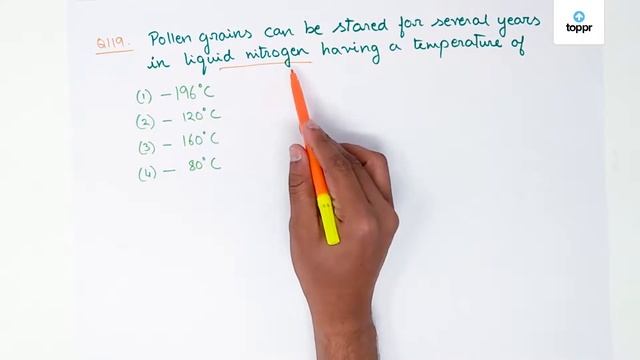 toppr
Q119. Pollen grains can be stared for several years
in liquid nitrogen having a temperature of
(1) – 196°C
(2) – 120°C
(3) – 160°C
(4) – 80°C